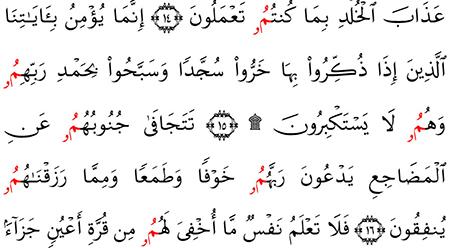 عَذَابَ ٱلْخُلْدِ بِمَا كُنتُمُۥ تَعْمَلُونَ ۝١٤ إِنَّمَا يُؤْمِنُ بِـَٔايَـٰتِنَا
ٱلَّذِينَ إِذَا ذُكِّرُوا۟ بِهَا خَرُّوا۟ سُجَّدًا وَسَبَّحُوا۟ بِحَمْدِ رَبِّهِمُۥ
وَهُمُۥ لَا يَسْتَكْبِرُونَ ۩ ۝١٥ تَتَجَافَىٰ جُنُوبُهُمُۥ عَنِ
ٱلْمَضَاجِعِ يَدْعُونَ رَبَّهُمُۥ خَوْفًا وَطَمَعًا وَمِمَّا رَزَقْنَـٰهُمُۥ
يُنفِقُونَ ۝١٦ فَلَا تَعْلَمُ نَفْسٌ مَّا أُخْفِىَ لَهُمُۥ مِن قُرَّةِ أَعْيُنٍ جَزَآءًۢ